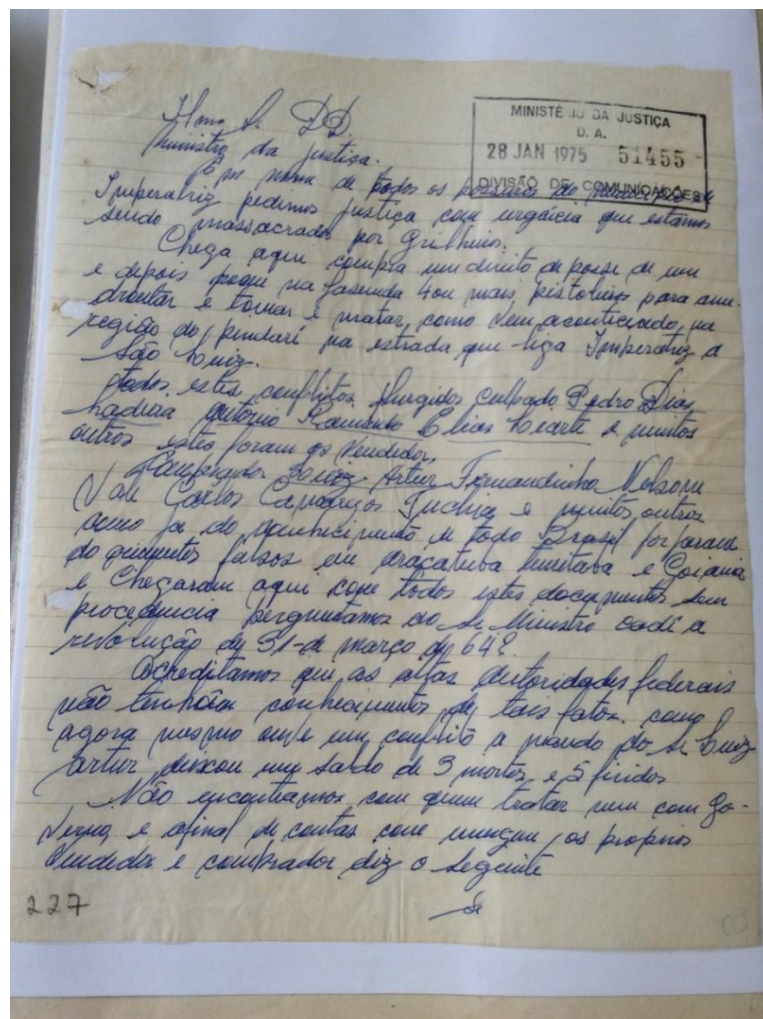 Ilmo Sr. DD.
Ministro da Justiça.
MINISTÉRIO DA JUSTIÇA
D. A.
28 JAN 1975 51455
DIVISÃO DE COMUNICAÇÕES
Em nome de todos os posseiros do municipio de
Imperatriz pedimos justiça com urgência que estamos
sendo massacrados por Grilheiros.
Chega aqui compra um direito de posse de um
e depois poque na fasenda 4 ou mais pistoleiros para ame-
drontar e tomar e matar, como vem aconticendo, na
região do pindaré na estrada que liga Imperatriz a
São Luiz.
todos estes conflitos surgidos culpado Pedro Dias
Antônio Raimundo Elias Duarte e muitos
outros estes foram os Vendedor,
Comprador Luiz Artur Fernandinho Nelsom
Vale Carlos Camargos Tuchia e muitos outros
como ja do conhecimento de todo Brasil for
documentos falsos em araçatuba e Goiania
e Chegaram aqui com todos estes documentos sem
procedencia perguntamos ao Sr Ministro cadê a
revolução de 31 de março de 64?
Acreditamos que as altas Autoridades federais
não tenhão conhecimentos de tais fatos. como
agora mesmo ouve um conflito a mando do Sr Luiz
Artur, deixou um saldo de 3 mortos e 5 firidos
Não encontramos com quem tratar nem com Go-
verno e afinal de contas com ninguem, os proprios
Vendedor e comprador diz o seguinte
227